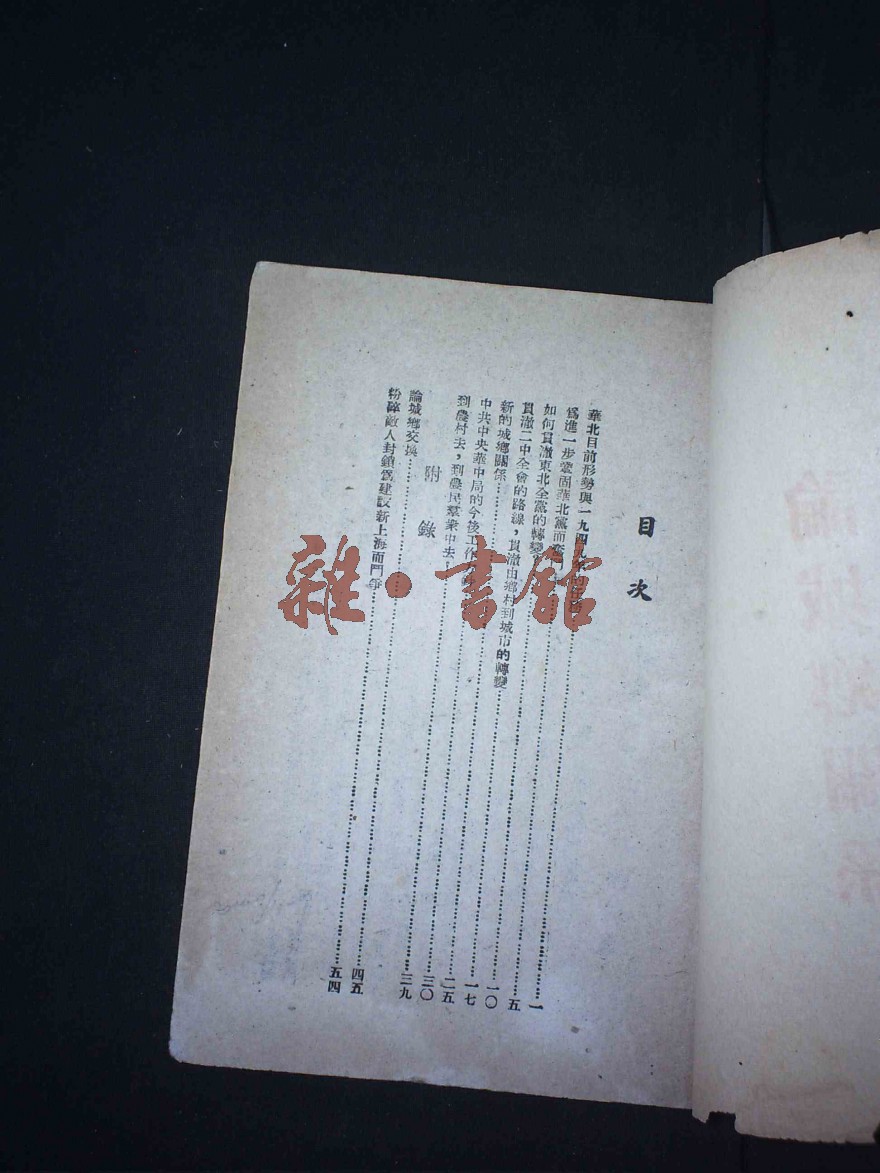 目次
華北目前形勢與一九四九年的任務……一
爲進一步鞏固華北黨而奮……五
如何貫澈東北全黨的轉變……一〇
貫澈二中全會的路線，貫澈由鄉村到城市的轉變……一七
新的城鄉關係……二五
中共中央華中局的今後工作……三〇
到農村去，到農民羣衆中去……三九
附錄
論城鄉交換……四五
粉碎敵人封鎖爲建設新上海而鬥爭……五四
雜·書館